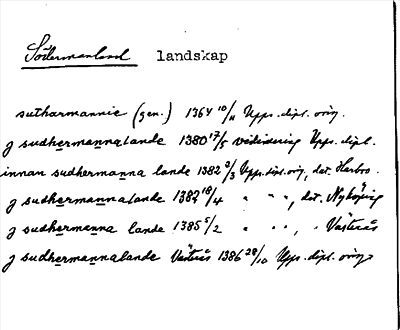 Södermanland landskap
sutharmannie (gen.) 1364 10/11 Upps. dipl. orig.
j sudhermannalande 1380 17/5 vidisering Upps. dipl.
innan sudhermanna lande 1382 3/3 Upps. dipl. orig., dat. Harbro.
j sudhermannalande 1382 18/4 " " ", dat. Nyköping
j sudhermanna lande 1385 5/2 " " ", " Västerås
j sudhermannalande Västerås 1386 28/10 Upps. dipl. orig.